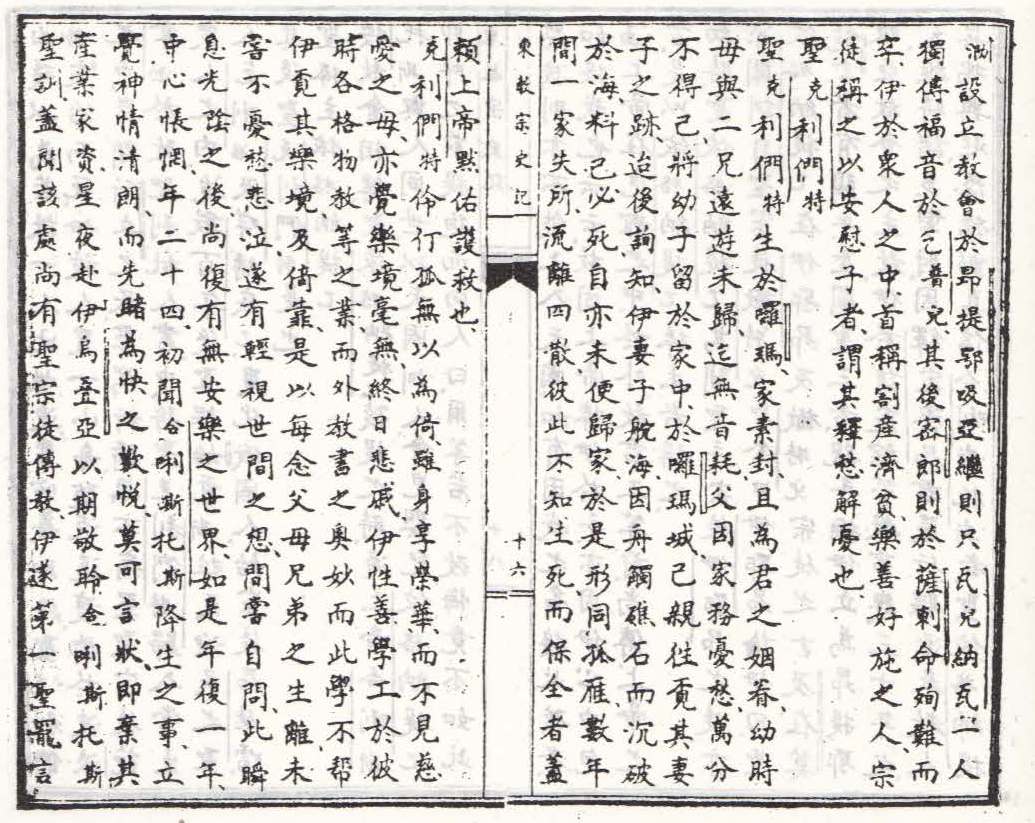 泐設立教會於昂提鄂吸亞繼則只瓦兒納瓦二人
獨傳福音於乞普兒其後密郎則於薩剌命殉難而
卒伊於衆人之中首稱割産濟貧樂善好施之人宗
徒稱之以安慰子者謂其釋愁解憂也
聖克利們特
聖克利們特生於囉瑪家素封且為君之姻眷幼時
母與二兄遠遊未歸迄無音耗父因家務憂愁萬分
不得已將幼子留於家中於囉瑪城己親徃覓其妻
子之跡迨後詢知伊妻子脫海因舟觸礁石而沉破
於海料己必死自亦未便歸家於是形同孤雁數年
間一家失所流離四散彼此不知生死而保全者蓋
東教宗史記
十六
賴上帝默佑護救也
克利們特伶仃孤無以為倚雖身享榮華而不見慈
愛之母亦覺樂境毫無終日悲戚伊性善學工於彼
時各格物教等之業而外教書之奥妙而此學不帮
伊覓其樂境及倚靠是以每念父母兄弟之生離未
嘗不憂愁悲泣遂有輕視世間之想間嘗自問此瞬
息光陰之後尚復有無安樂之世界如是年復一年
中心悵惘年二十四初聞合唎斯托斯降生之事立
覺神情清朗而先睹為快之歡悅莫可言狀即棄其
産業家資星夜赴伊烏叠亞以期敬聆合唎斯托斯
聖訓蓋聞該處尚有聖宗徒傳教伊遂第一聖罷言